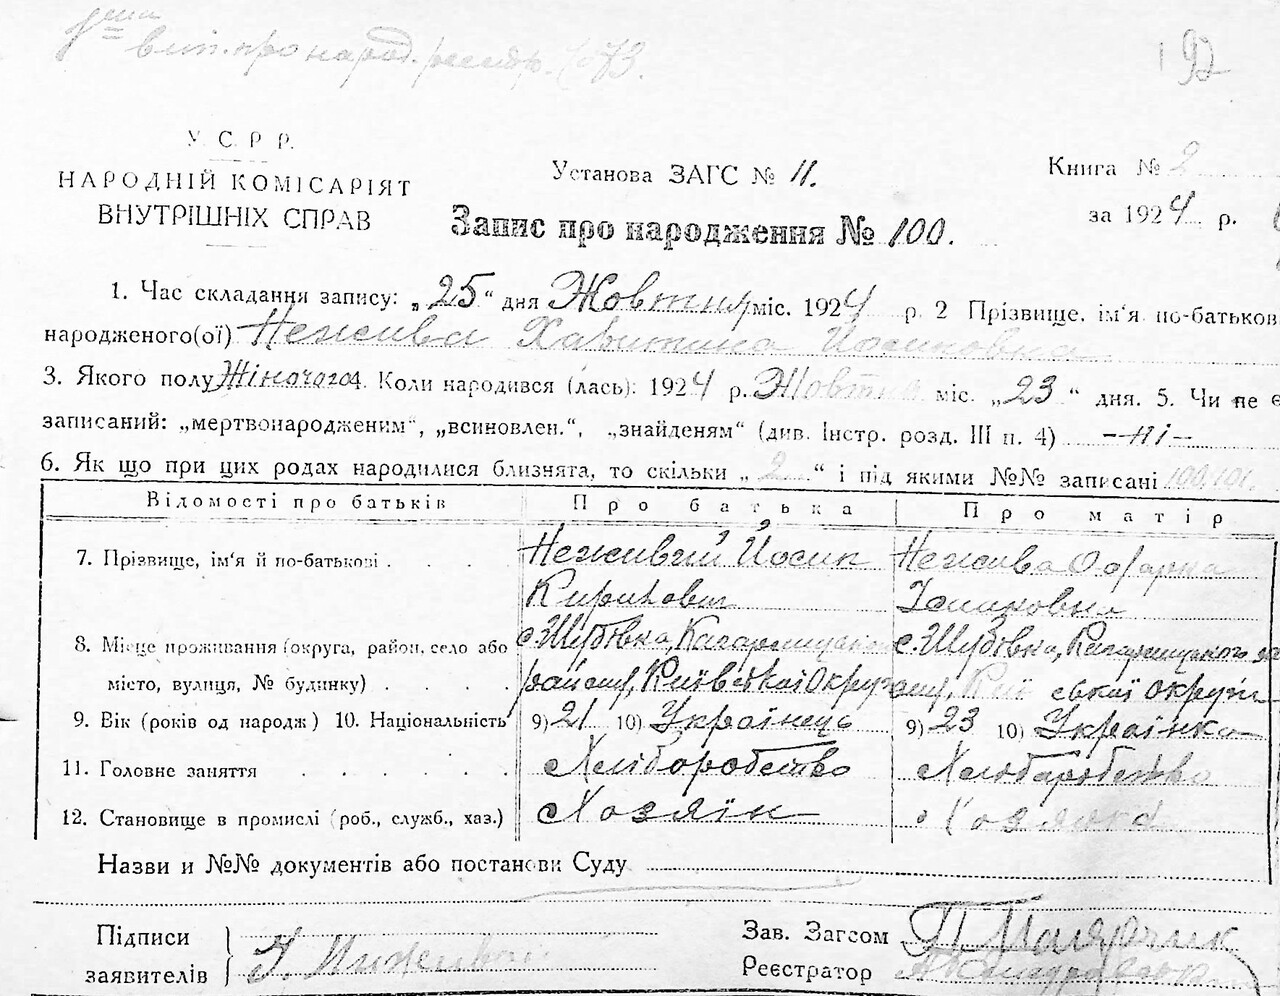 вип. про народ.
192
У. С. Р. Р.
НАРОДНІЙ КОМІСАРІЯТ
ВНУТРІШНІХ СПРАВ
Установа ЗАГС № 11.
Книга № 2
за 1924 р.
Запис про народження № 100.
1. Час складання запису: „25“ дня Жовтня міс. 1924 р. 2 Прізвище, ім'я по-батьков
народженого(ої) Неживa Харитина Йосиповна
3. Якого полу Жіночого 4. Коли народився (лась): 1924 р. Жовтня міс. „23“ дня. 5. Чи не є
записаний: „мертвонародженим“, „всиновлен.“, „знайденям“ (див. Інстр. розд. III п. 4) —ні—
6. Як що при цих родах народилися близнята, то скільки „2“ і під якими №№ записані 100.101.
Відомості про батьків Про батька Про матір
7. Прізвище, ім'я й по-батькові . . . . Неживий Йосип Кирилович Нежива Одарка
8. Місце проживання (округа, район, село або с. Шубівка, Кагарлицького с. Шубівка, Кагарлицького
місто, вулиця, № будинку) . . . . району, Київської Округи Київської округи
9. Вік (років од народж) 10. Національність 9) 21 10) Українець 9) 23 10) Українка
11. Головне заняття . . . . . . Хліборобство Хліборобство
12. Становище в промислі (роб., служб., хаз.) Хозяїн Хозяйка
Назви и №№ документів або постанови Суду
Підписи
заявителів
Зав. Загсом
Реєстратор